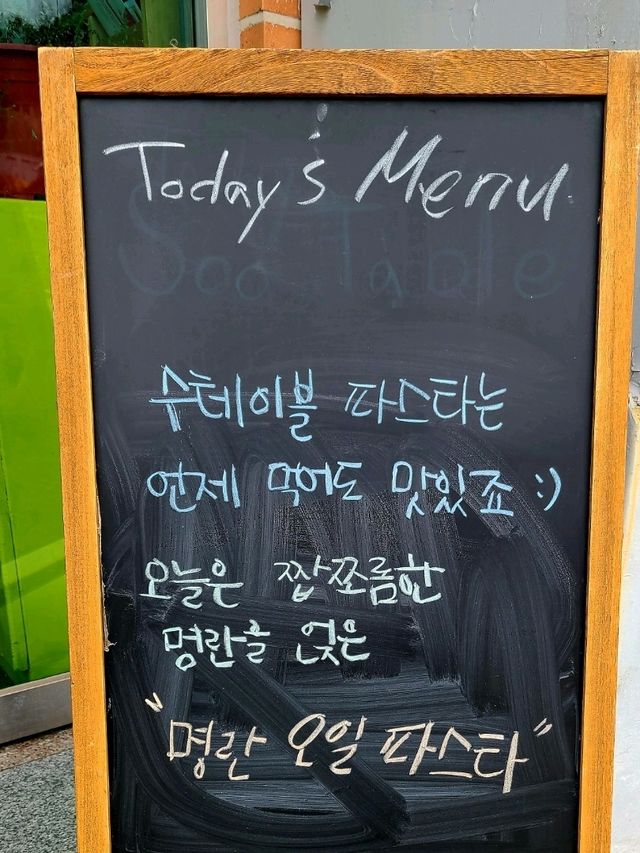 Today's Menu
Soo Table
수테이블 파스타는
언제 먹어도 맛있죠 :)
오늘은 짭쪼름한
명란을 얹은
"명란 오일 파스타"